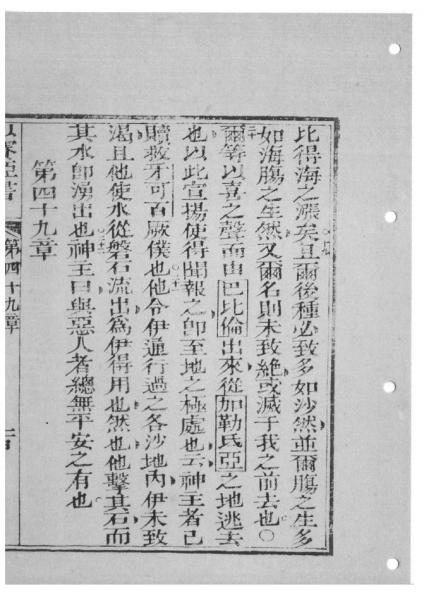 比得海之漲矣且爾後種必致多如沙然並爾膓之生多
如海膓之生然又爾名則未致絶或滅于我之前去也〇
爾等以喜之聲而由巴比倫出來從加勒氏亞之地逃去
也以此宣揚使得聞報之卽至地之極處也云神主者已
贖救牙可百厥僕也他令伊通行過之各沙地內伊未致
渴且他使水從磐石流出爲伊得用也然也他擊其石而
其水卽湧出也神主曰與惡人者總無平安之有也
第四十九章
第四十九章